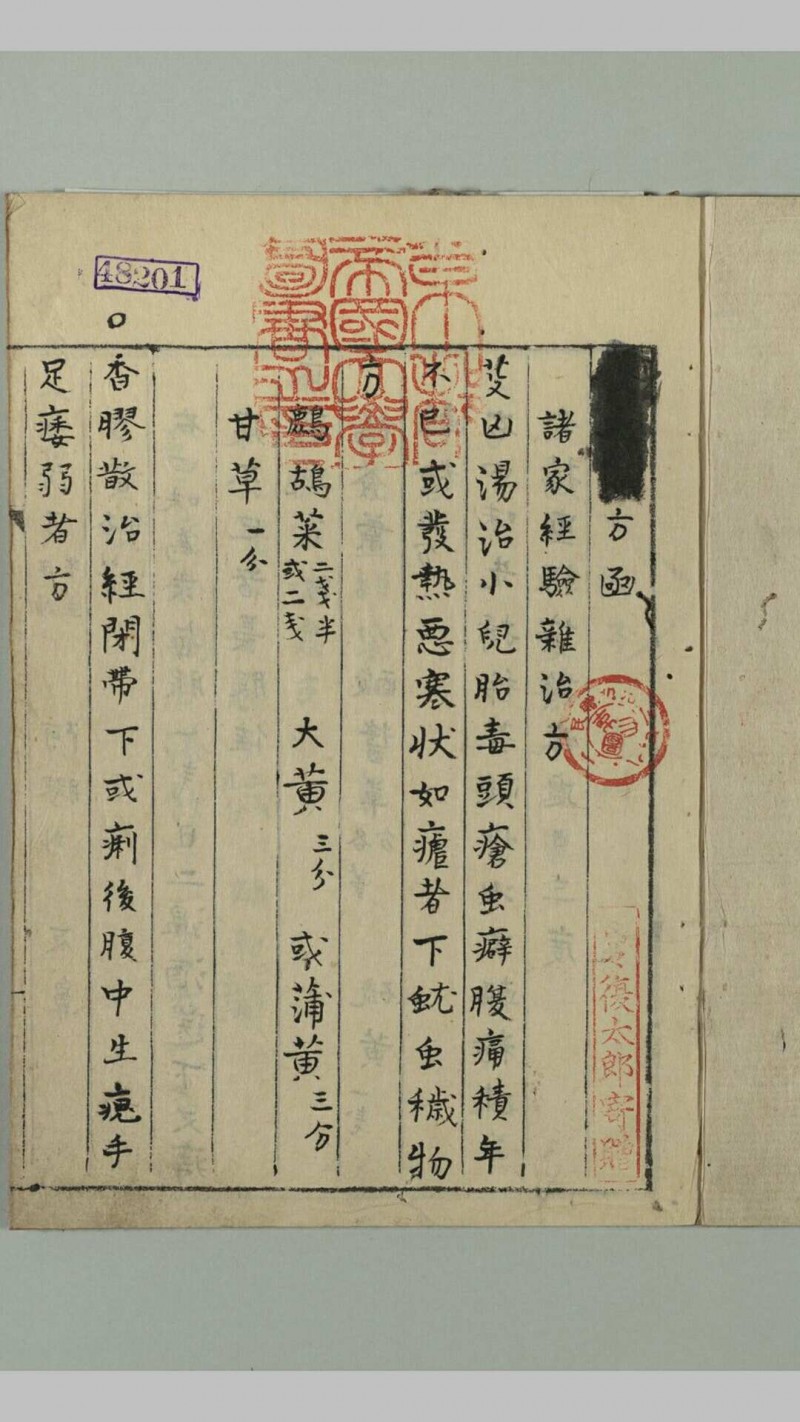 48201
方函
諸家經驗雜治方
艾凶湯治小兒胎毒頭瘡虫癖腹痛積年
不已或發熱惡寒状如瘧者下蚘虫穢物
方
鷓鴣菜 二戔半 或二戔 大黄 三分 或蒲黄 三分
甘草 一分
○香膠散治經閉帶下或痢後腹中生瘣手
足痿弱者方
帝國大學圖書
復太郎寄贈